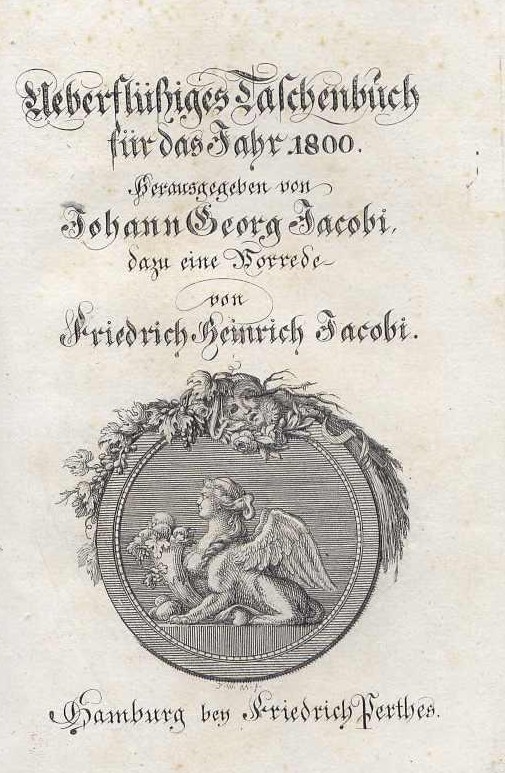 Ueberflüßiges Taschenbuch
für das Jahr 1800.
Herausgegeben von
Johann Georg Jacobi,
dazu eine Vorrede
von
Friedrich Heinrich Jacobi.
Hamburg bey Friedrich Perthes.